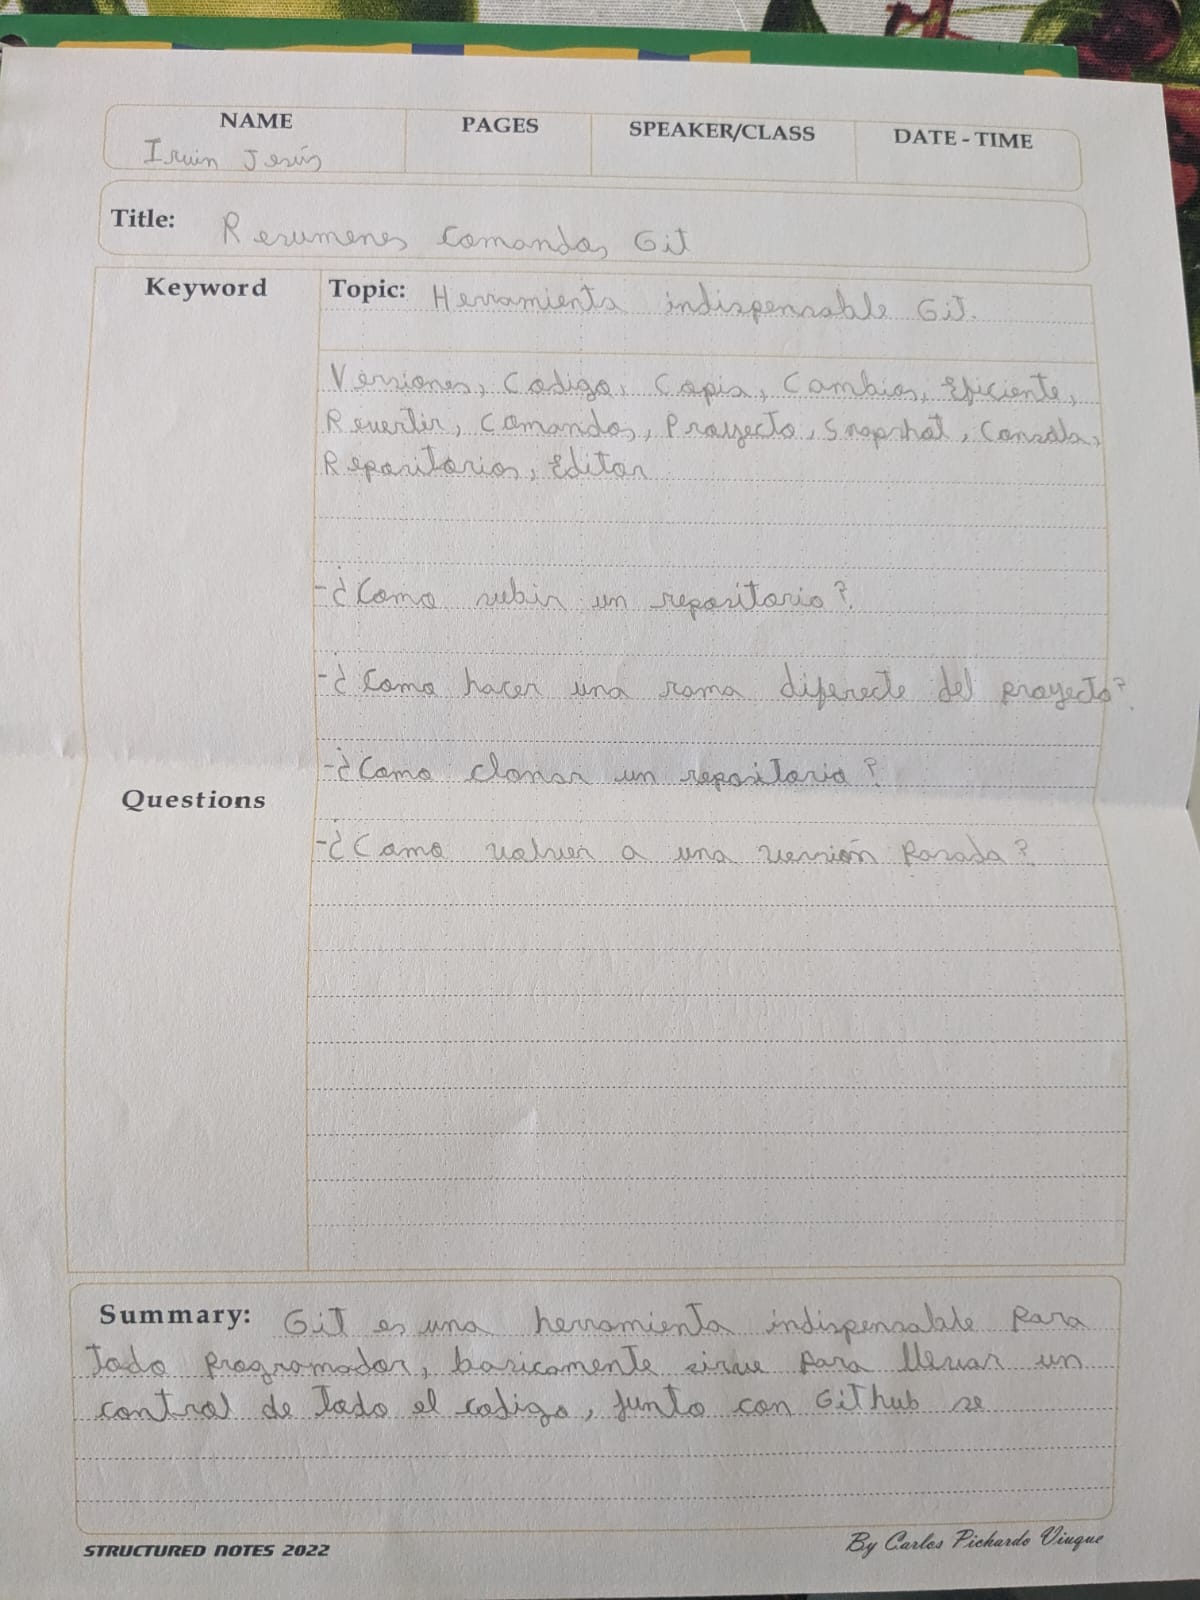 NAME PAGES SPEAKER/CLASS DATE - TIME
Irvin Jesús
Title: Resumenes Comandos Git
Keyword Topic: Herramienta indispensable Git.
Versiones, Codigo, Copia, Cambios, Eficiente,
Revertir, Comandos, Proyecto, Snapshot, Consola,
Repositorios, Editor
-¿Como subir un repositorio?
-¿Como hacer una rama diferecte del proyecto?
-¿Como clonar un repositorio?
Questions
-¿Como volver a una versión Pasada?
Summary: Git es una herramienta indispensable Para
Todo programador, basicamente sirve para llevar un
control de Todo el codigo, junto con GitHub se
STRUCTURED NOTES 2022 By Carlos Pichardo Viuque